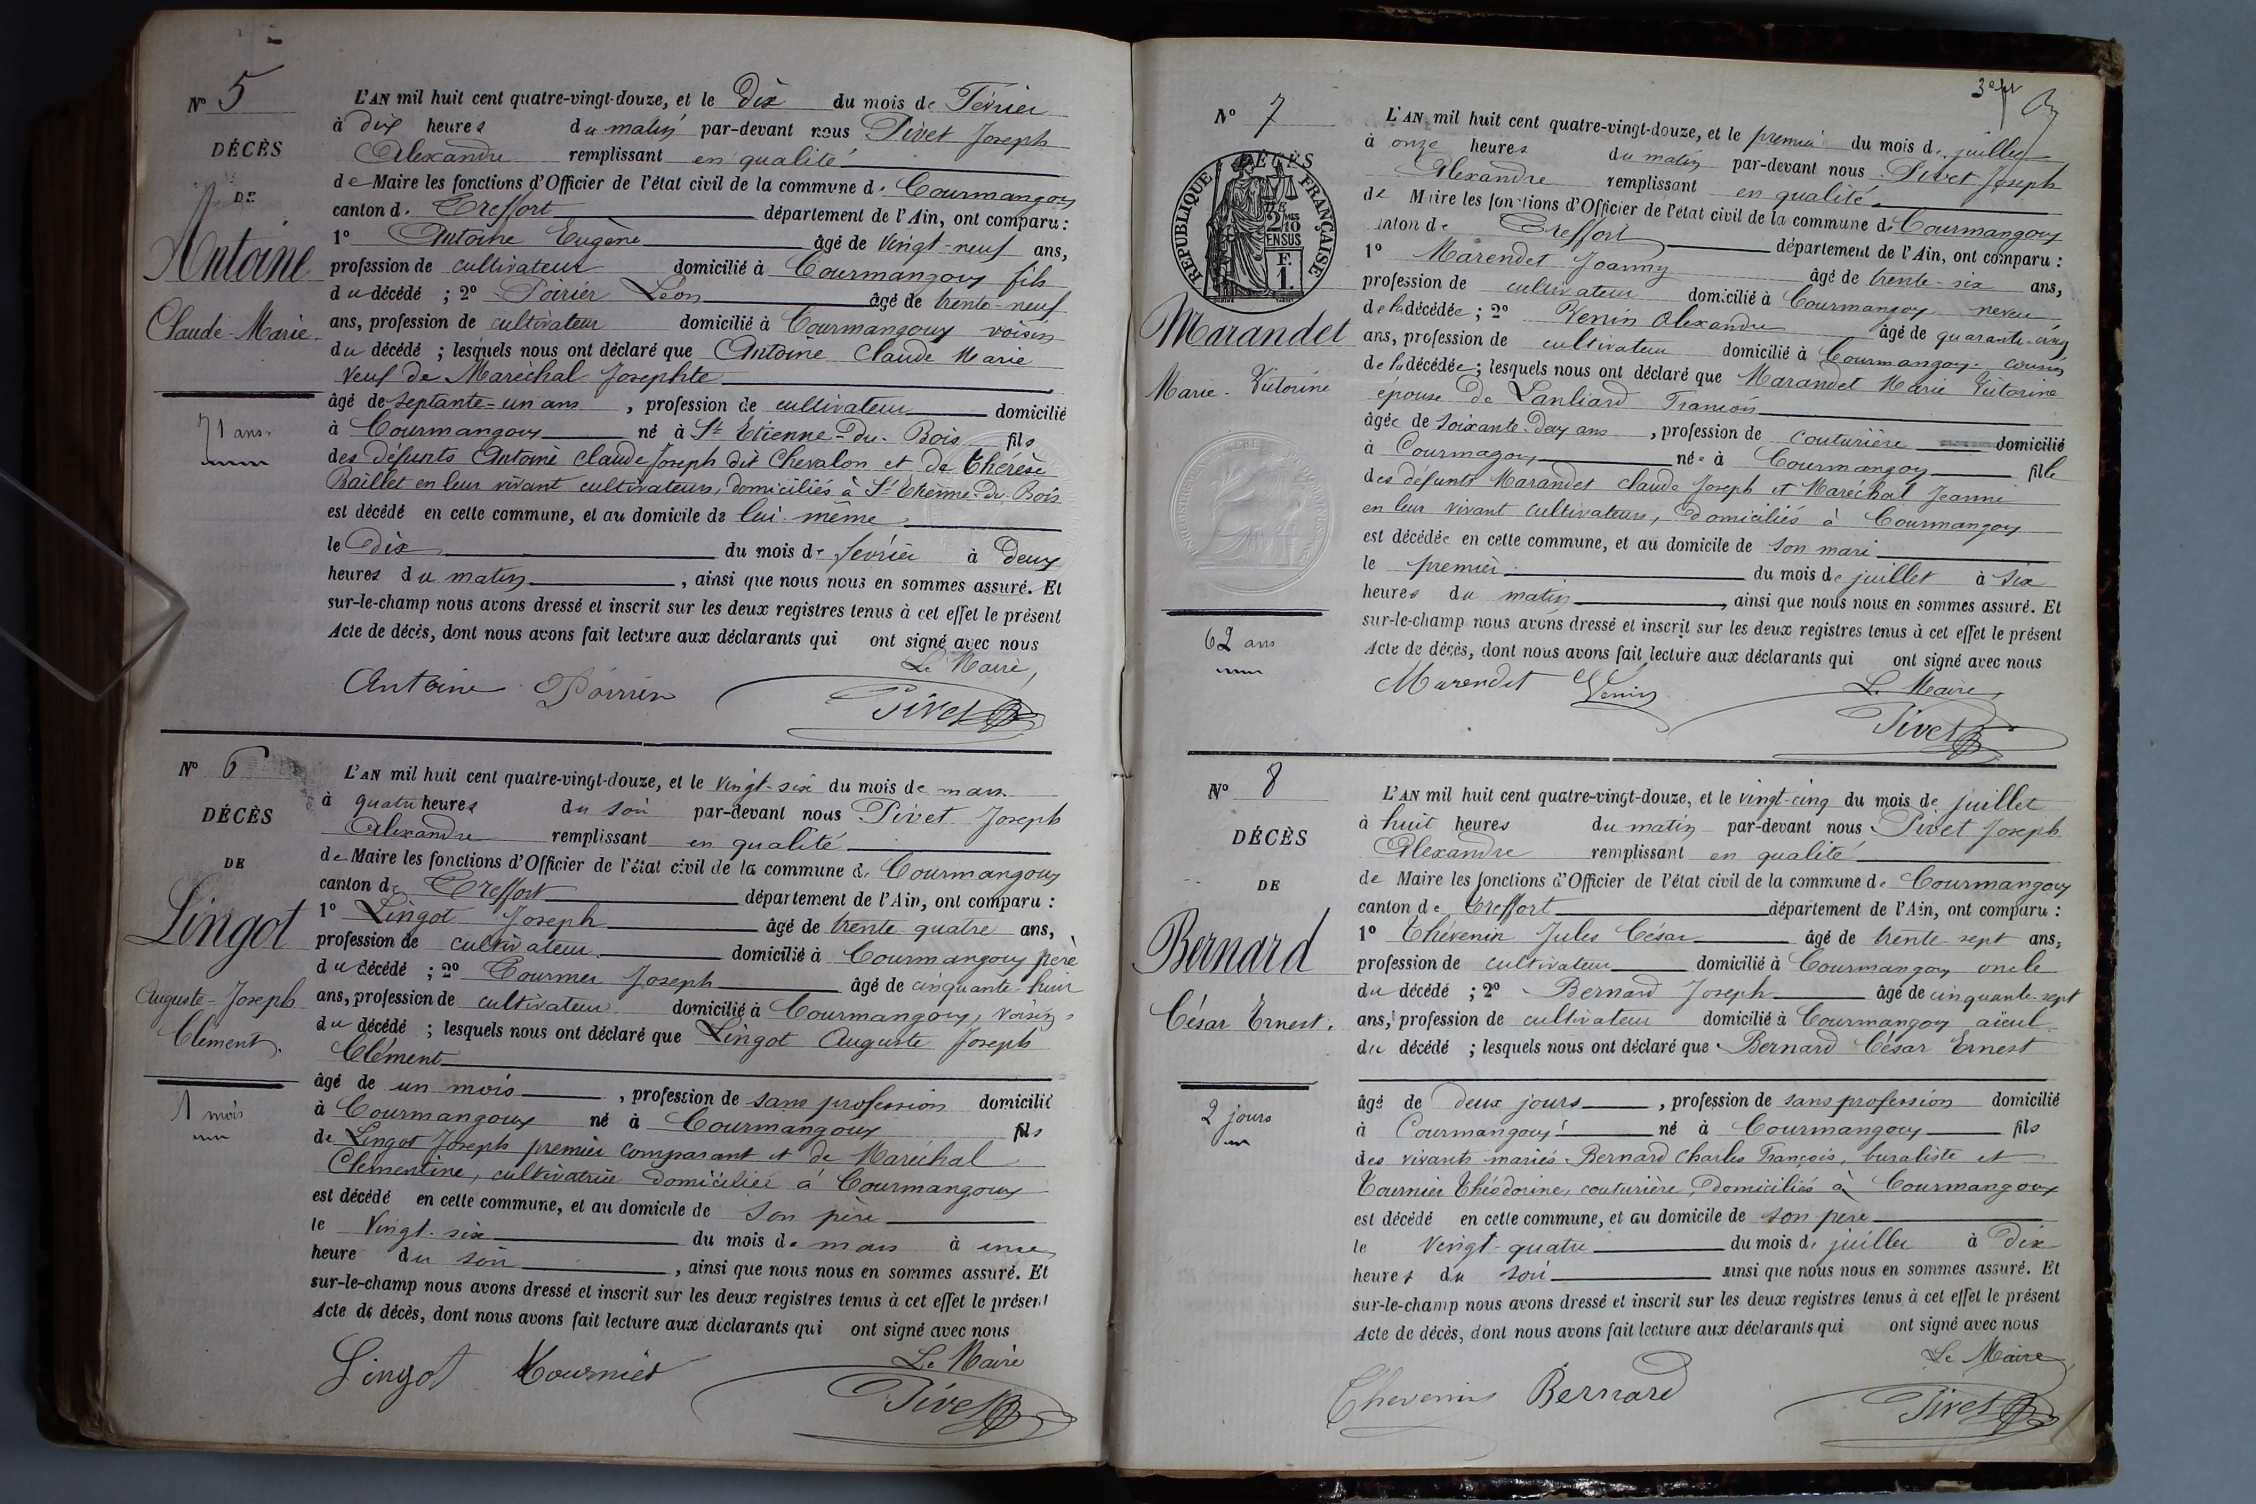 N° 5
DÉCÈS
DE
Antoine
Claude-Marie
71 ans
L'AN mil huit cent quatre-vingt-douze, et le Dix du mois de Février
à dix heures du matin par-devant nous Pivet Joseph
Alexandre remplissant en qualité
de Maire les fonctions d'Officier de l'état civil de la commune de Courmangoux
canton de Treffort département de l'Ain, ont comparu :
1° Antoine Eugène âgé de vingt-neuf ans,
profession de cultivateur domicilié à Courmangoux fils
du décédé ; 2° Poirier Léon âgé de trente-neuf
ans, profession de cultivateur domicilié à Courmangoux voisin
du décédé ; lesquels nous ont déclaré que Antoine Claude Marie
veuf de Maréchal Josephte
âgé de septante-un ans, profession de cultivateur domicilié
à Courmangoux né à St Etienne-du-Bois fils
des défunts Antoine Claude Joseph dit Chevalon et de Thérèse
Baillet en leur vivant cultivateurs, domiciliés à St Etienne-du-Bois
est décédé en cette commune, et au domicile de lui-même
le Dix du mois de février à Deux
heures du matin, ainsi que nous nous en sommes assuré. Et
sur-le-champ nous avons dressé et inscrit sur les deux registres tenus à cet effet le présent
Acte de décès, dont nous avons fait lecture aux déclarants qui ont signé avec nous
Le Maire,
Antoine Poirier Pivet
N° 6
DÉCÈS
DE
Lingot
Auguste-Joseph
Clément
1 mois
L'AN mil huit cent quatre-vingt-douze, et le vingt-six du mois de mars
à quatre heures du soir par-devant nous Pivet Joseph
Alexandre remplissant en qualité
de Maire les fonctions d'Officier de l'état civil de la commune de Courmangoux
canton de Treffort département de l'Ain, ont comparu :
1° Lingot Joseph âgé de trente quatre ans,
profession de cultivateur domicilié à Courmangoux père
du décédé ; 2° Tournier Joseph âgé de cinquante-huit
ans, profession de cultivateur domicilié à Courmangoux, voisin
du décédé ; lesquels nous ont déclaré que Lingot Auguste Joseph
Clément
âgé de un mois, profession de sans profession domicilié
à Courmangoux né à Courmangoux fils
de Lingot Joseph premier comparant et de Maréchal
Clémentine, cultivatrice domiciliée à Courmangoux
est décédé en cette commune, et au domicile de son père
le Vingt-six du mois de mars à une
heure du soir, ainsi que nous nous en sommes assuré. Et
sur-le-champ nous avons dressé et inscrit sur les deux registres tenus à cet effet le présent
Acte de décès, dont nous avons fait lecture aux déclarants qui ont signé avec nous
Le Maire
Lingot Tournier Pivet
N° 7
DÉCÈS
DE
RÉPUBLIQUE FRANÇAISE
2/10 MES
EN SUS
F. 1.
Marandet
Marie-Victorine
62 ans
L'AN mil huit cent quatre-vingt-douze, et le premier du mois de juillet
à onze heures du matin par-devant nous Pivet Joseph
Alexandre remplissant en qualité
de Maire les fonctions d'Officier de l'état civil de la commune de Courmangoux
canton de Treffort département de l'Ain, ont comparu :
1° Marendet Joanny âgé de trente-six ans,
profession de cultivateur domicilié à Courmangoux neveu
de la décédée ; 2° Renin Alexandre âgé de quarante-cinq
ans, profession de cultivateur domicilié à Courmangoux cousin
de la décédée ; lesquels nous ont déclaré que Marandet Marie Victorine
épouse de Lanliard François
âgée de soixante-deux ans, profession de couturière domicilié
à Courmagoux née à Courmangoux fille
des défunts Marandet Claude Joseph et Maréchal Jeanne
en leur vivant cultivateurs, domiciliés à Courmangoux
est décédée en cette commune, et au domicile de son mari
le premier du mois de juillet à six
heures du matin, ainsi que nous nous en sommes assuré. Et
sur-le-champ nous avons dressé et inscrit sur les deux registres tenus à cet effet le présent
Acte de décès, dont nous avons fait lecture aux déclarants qui ont signé avec nous
Le Maire,
Marendet Pivet
N° 8
DÉCÈS
DE
Bernard
César Ernest.
2 jours
L'AN mil huit cent quatre-vingt-douze, et le vingt-cinq du mois de juillet
à huit heures du matin par-devant nous Pivet Joseph
Alexandre remplissant en qualité
de Maire les fonctions d'Officier de l'état civil de la commune de Courmangoux
canton de Treffort département de l'Ain, ont comparu :
1° Thévenin Jules César âgé de trente-sept ans,
profession de cultivateur domicilié à Courmangoux oncle
du décédé ; 2° Bernard Joseph âgé de cinquante-sept
ans, profession de cultivateur domicilié à Courmangoux aïeul
du décédé ; lesquels nous ont déclaré que Bernard César Ernest
âgé de deux jours, profession de sans profession domicilié
à Courmangoux né à Courmangoux fils
des vivants mariés Bernard Charles François, buraliste et
Tournier Théodorine, couturière, domiciliés à Courmangoux
est décédé en cette commune, et au domicile de son père
le Vingt-quatre du mois de juillet à Dix
heures du soir ainsi que nous nous en sommes assuré. Et
sur-le-champ nous avons dressé et inscrit sur les deux registres tenus à cet effet le présent
Acte de décès, dont nous avons fait lecture aux déclarants qui ont signé avec nous
Le Maire
Thevenin Bernard Pivet